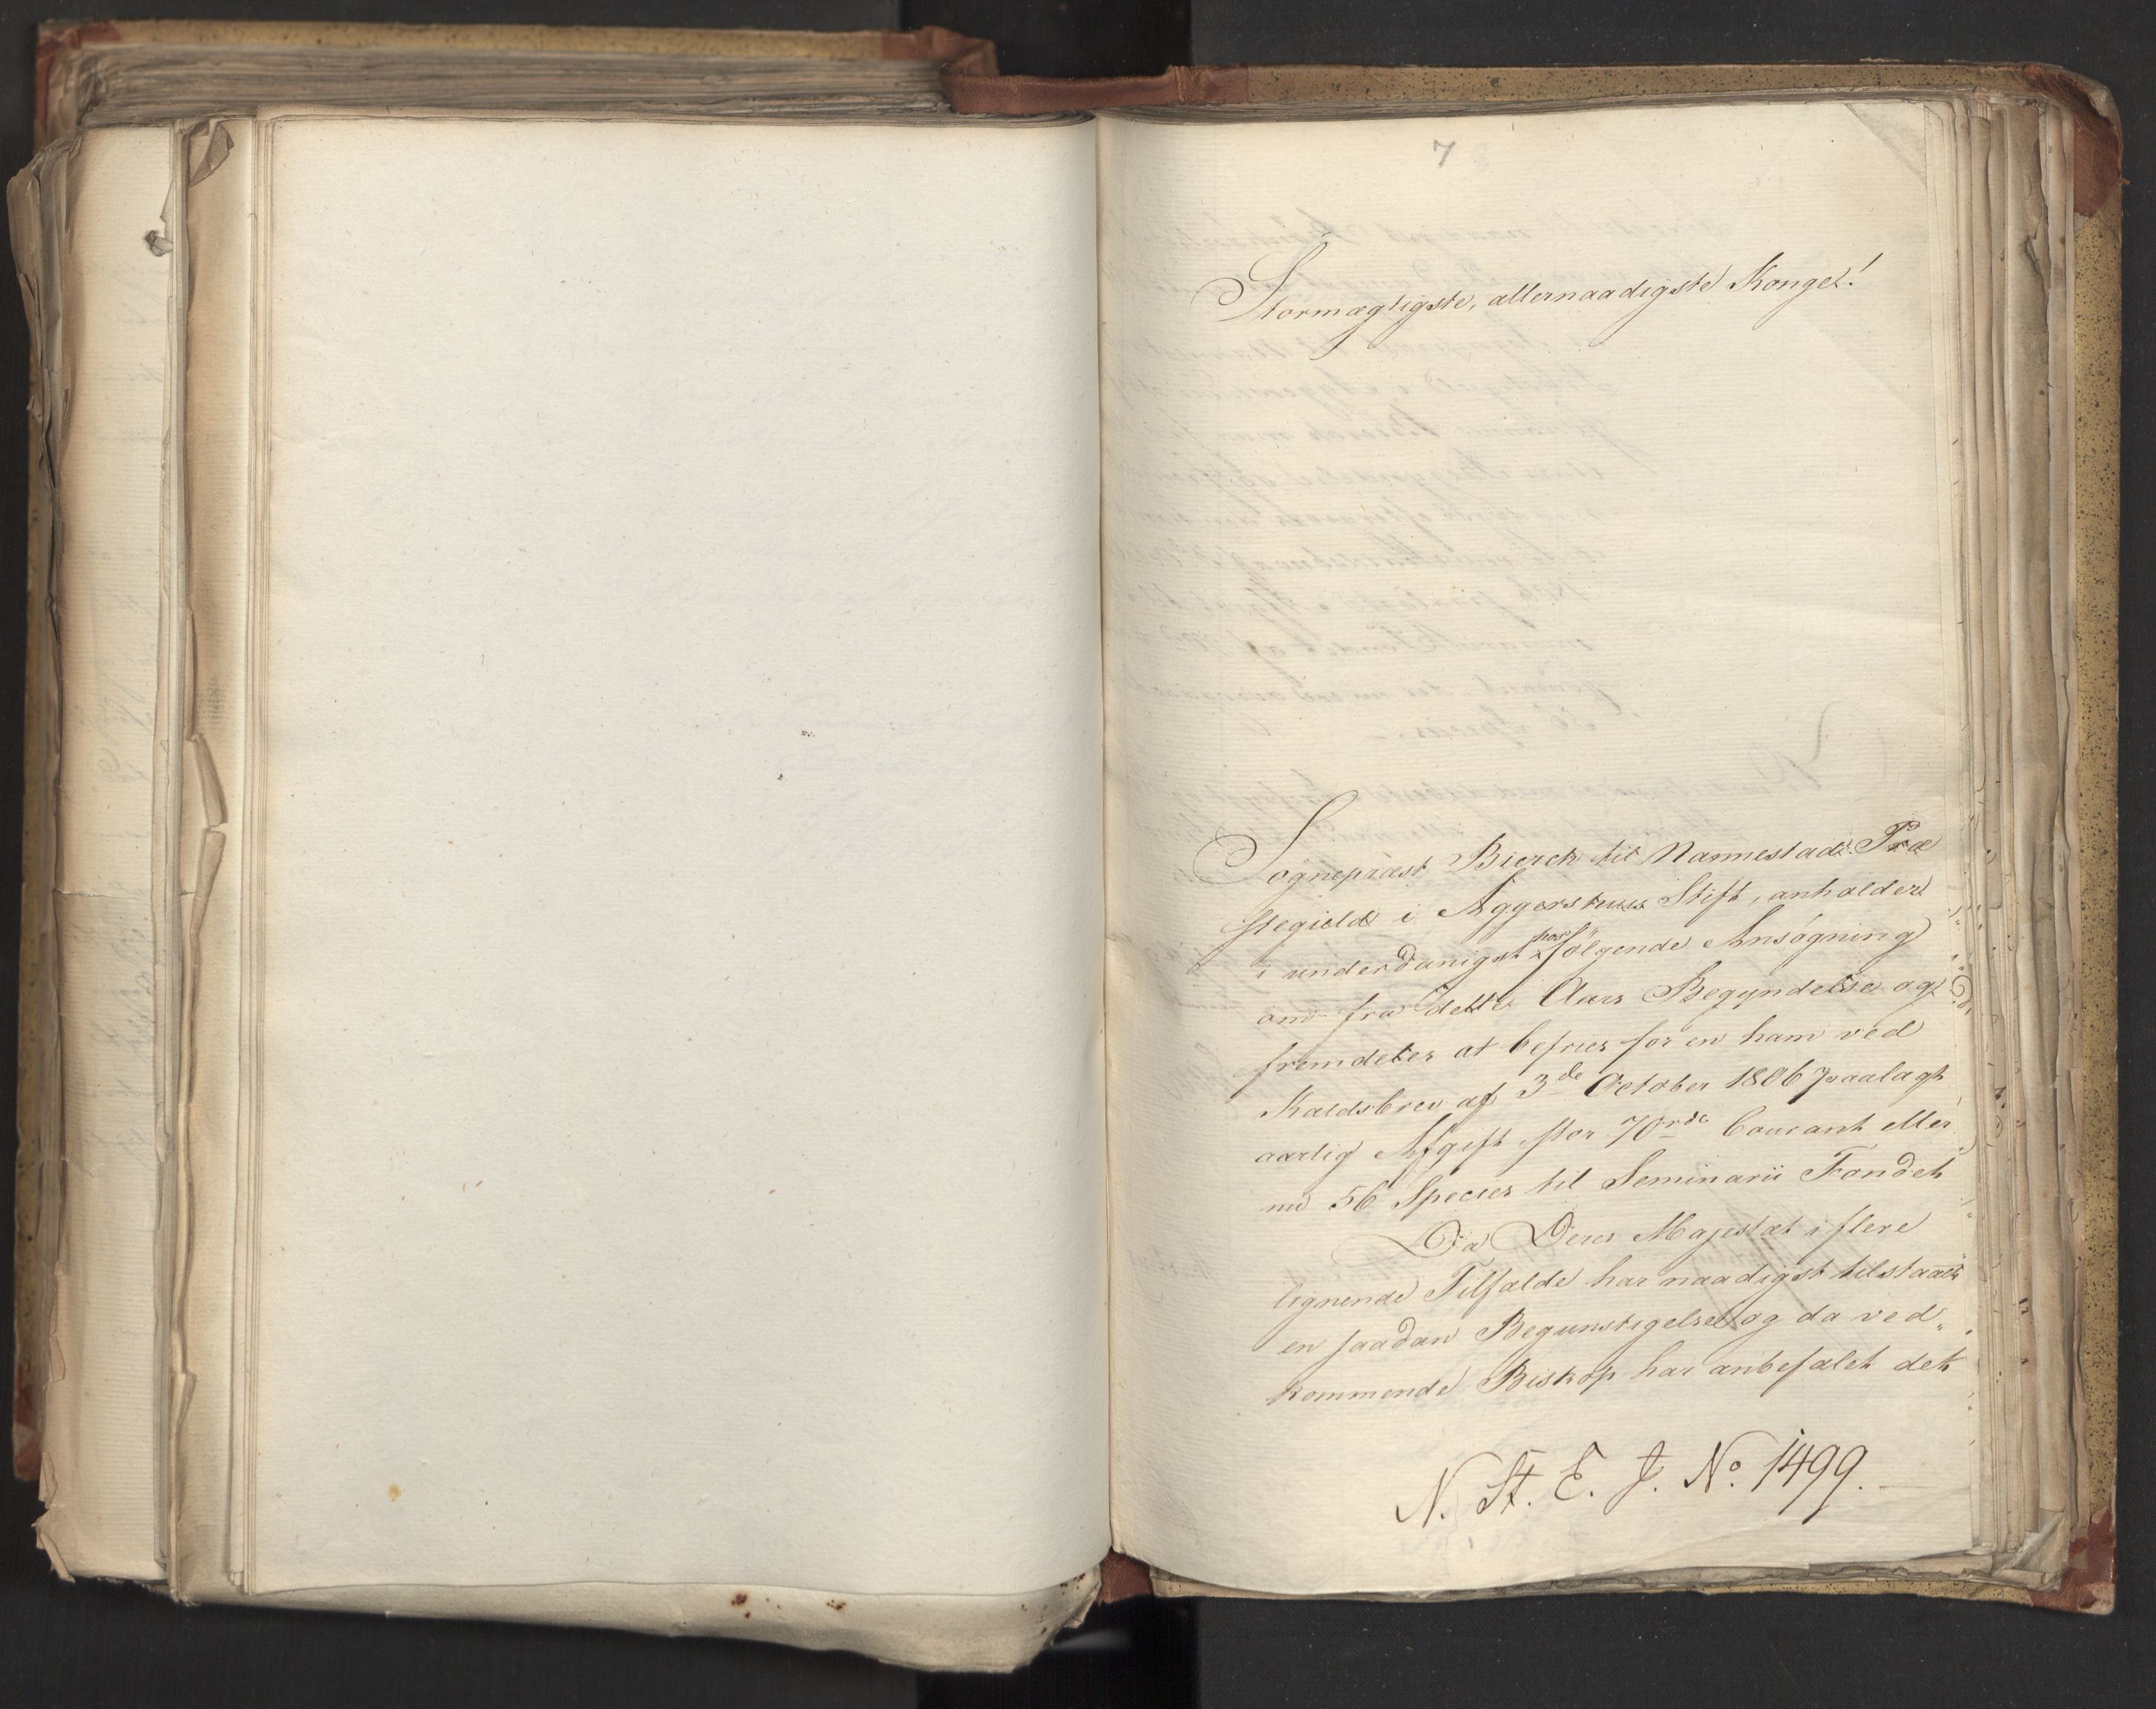 7
Stormægtigste, allernaadigste Konge!
Sognepræst Bierch til Nannestad Præ
stegield i Aggershuus Stift, anholder
i underdanigst hosfølgende Ansøgning
om fra dette Aars Begyndelse og
fremdeles at befries for en ham ved
Kaldsbrev af 3de October 1806 paalagt
aarlig Afgift stor 70 rdr Courant eller
nu 56 Species til Seminarii Fondet
Da Deres Majestæt i flere
lignende Tilfælde har naadigst tilstaaet
en saadan Begunstigelse og da ved„
kommende Biskop har anbefalet det
N. St. E. J. No. 1499.